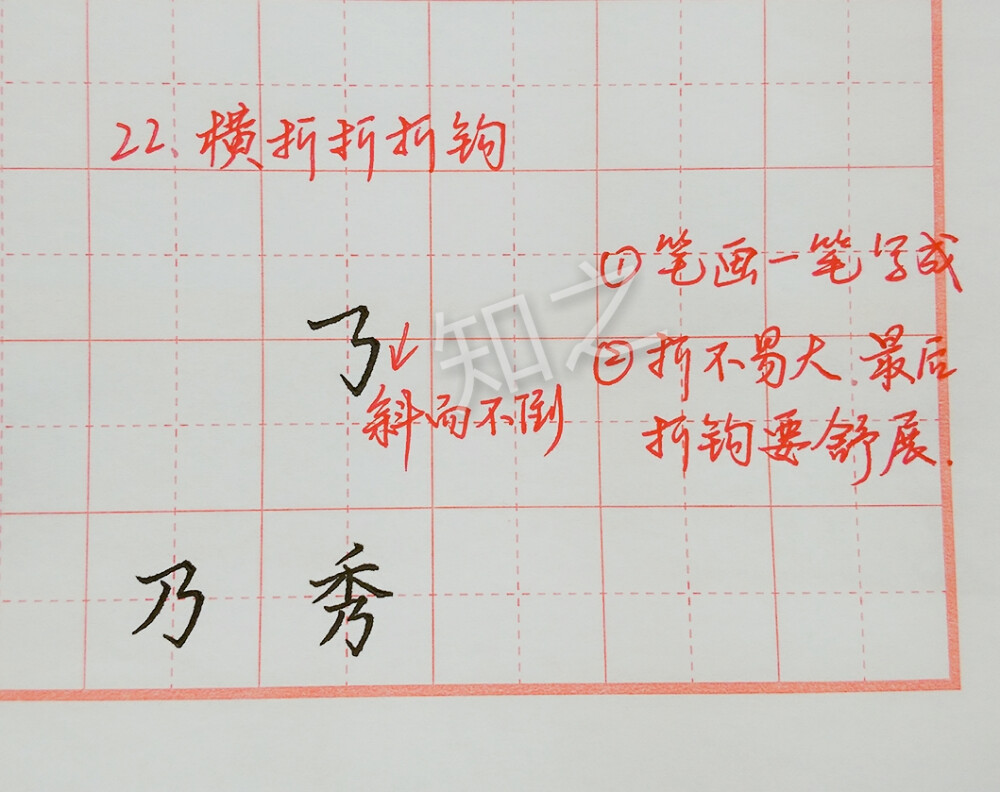 22、横折折折钩
①笔画一笔写成
㇡
知之
②折不易大.最后
斜而不倒
折钩要舒展.
乃 秀